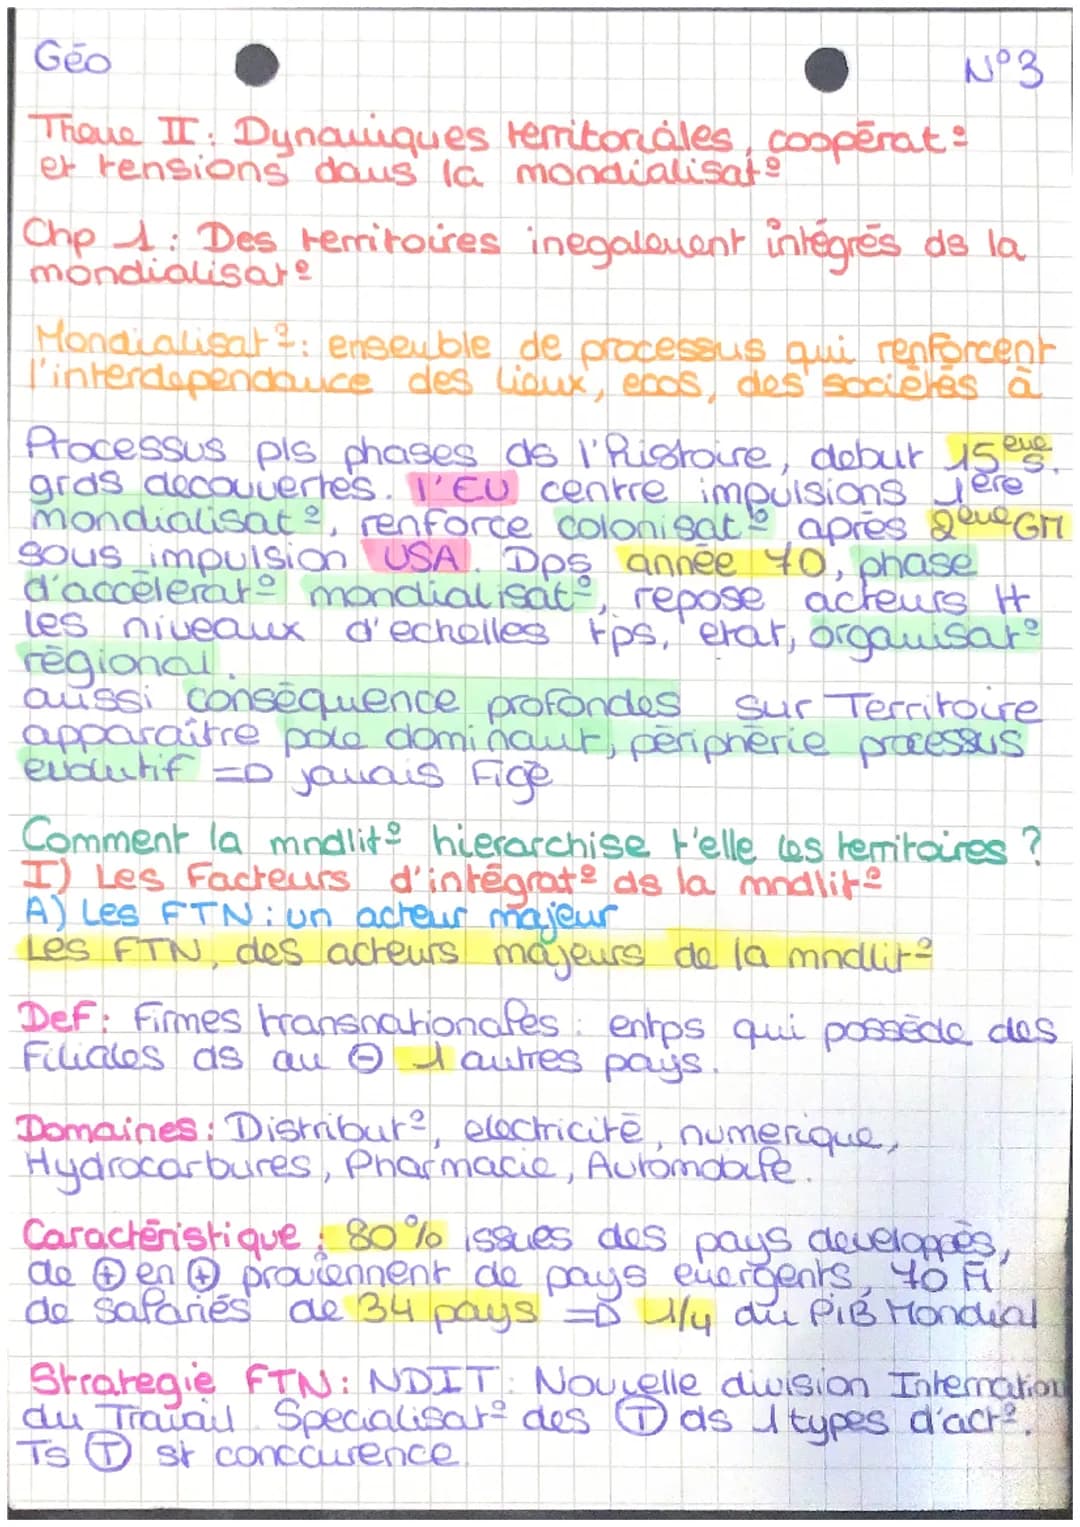 Géo
N°3
Thème II : Dynamiques territoriales, coopérat°
et tensions dans la mondialisat°
Chp 1 : Des territoires inegalement intégrés ds la
mondialisat°
Mondialisat° : ensemble de processus qui renforcent
l'interdependance des lieux, ecos, des sociétés à
Processus pls phases ds l'histoire, debut 15ème s.
grds decouvertes. l'EU centre impulsions 1ère
mondialisat°, renforce colonisat° après 2ème GM
sous impulsion USA. Dps année 70, phase
d'accélerat° mondialisat°, repose acteurs tt
les niveaux d'echelles ftps, etat, organisat°
régional.
aussi conséquence profondes sur Territoire
apparaître pole dominant, périphérie processus
evolutif => jamais figé
Comment la mndlit° hierarchise t'elle les territoires ?
I) Les Facteurs d'intégrat° ds la mndlit°
A) Les FTN : un acteur majeur
Les FTN, des acteurs majeurs de la mndlit°
Def : Firmes transnationales : entps qui possède des
Filiales ds au ⊖ 1 autres pays.
Domaines : Distribut°, electricité, numerique,
Hydrocarbures, Pharmacie, Automobile.
Caractéristique : 80% issues des pays developpés,
de ⊕ en ⊕ proviennent de pays emergents, 70 M
de salariés de 34 pays => 1/4 du PIB Mondial
Strategie FTN : NDIT : Nouvelle division Internation
du Travail. Specialisat° des Ⓣ ds 1 types d'act°.
Ts Ⓣ st conccurence.